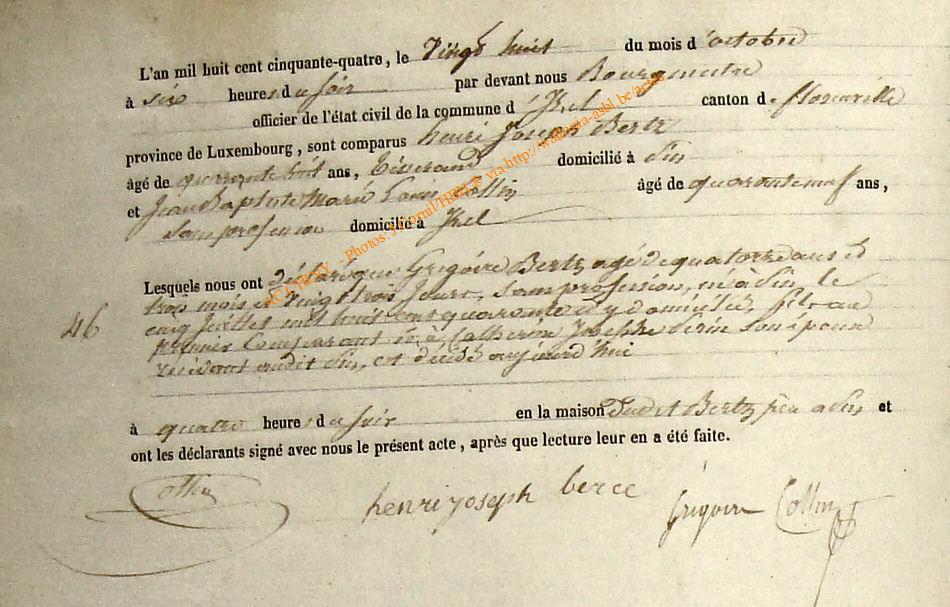 L'an mil huit cent cinquante-quatre, le Vingt huit du mois d'octobre
à six heures du soir par devant nous Bourgmestre
officier de l'état civil de la commune d'Izel canton de florenville
province de Luxembourg, sont comparus henri Joseph Bertz
âgé de quarante huit ans, Tisserand domicilié à
et Jean Baptiste Marie Collin âgé de quarante neuf ans,
Sans profession domicilié à Izel
Lesquels nous ont déclaré que Grégoire Bertz, agé de quatorze ans et
46
trois mois et vingt trois jours, sans profession, né à le
cinq juillet mil huit cent quarante et y domicilié, fils du
premier Comparant et à Catherine Josephe son épouse
résidant audit est décédé aujourd'hui
à quatre heures du soir en la maison dudit Bertz à et
ont les déclarants signé avec nous le présent acte, après que lecture leur en a été faite.
Collin
henri joseph berce
grégoire Collin
Photos: via http://